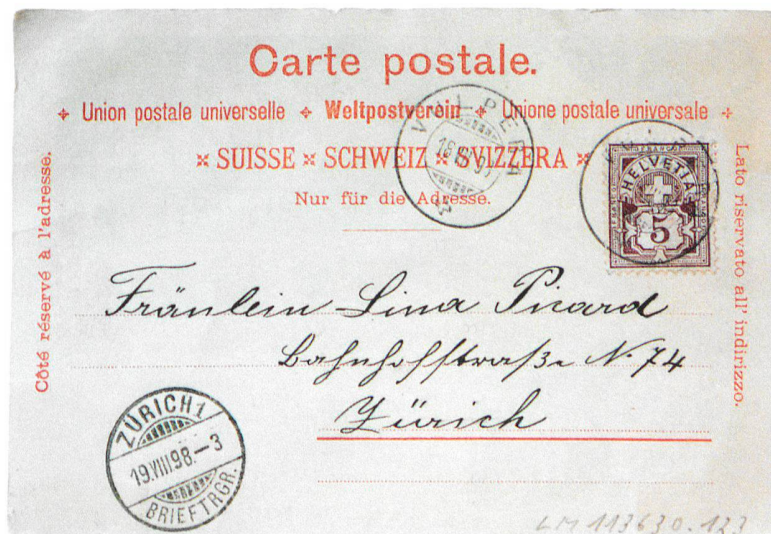 Carte postale.
Union postale universelle Weltpostverein Unione postale universale
SUISSE SCHWEIZ SVIZZERA
Nur für die Adresse.
Côté réservé à l'adresse.
Lato riservato all' indirizzo.
HELVETIA
5
Fräulein Lina Picard
Bahnhofstraße N. 74
Zürich
ZÜRICH 1
19.VIII.98.–3
BRIEFTRGR.
LM 113630.123